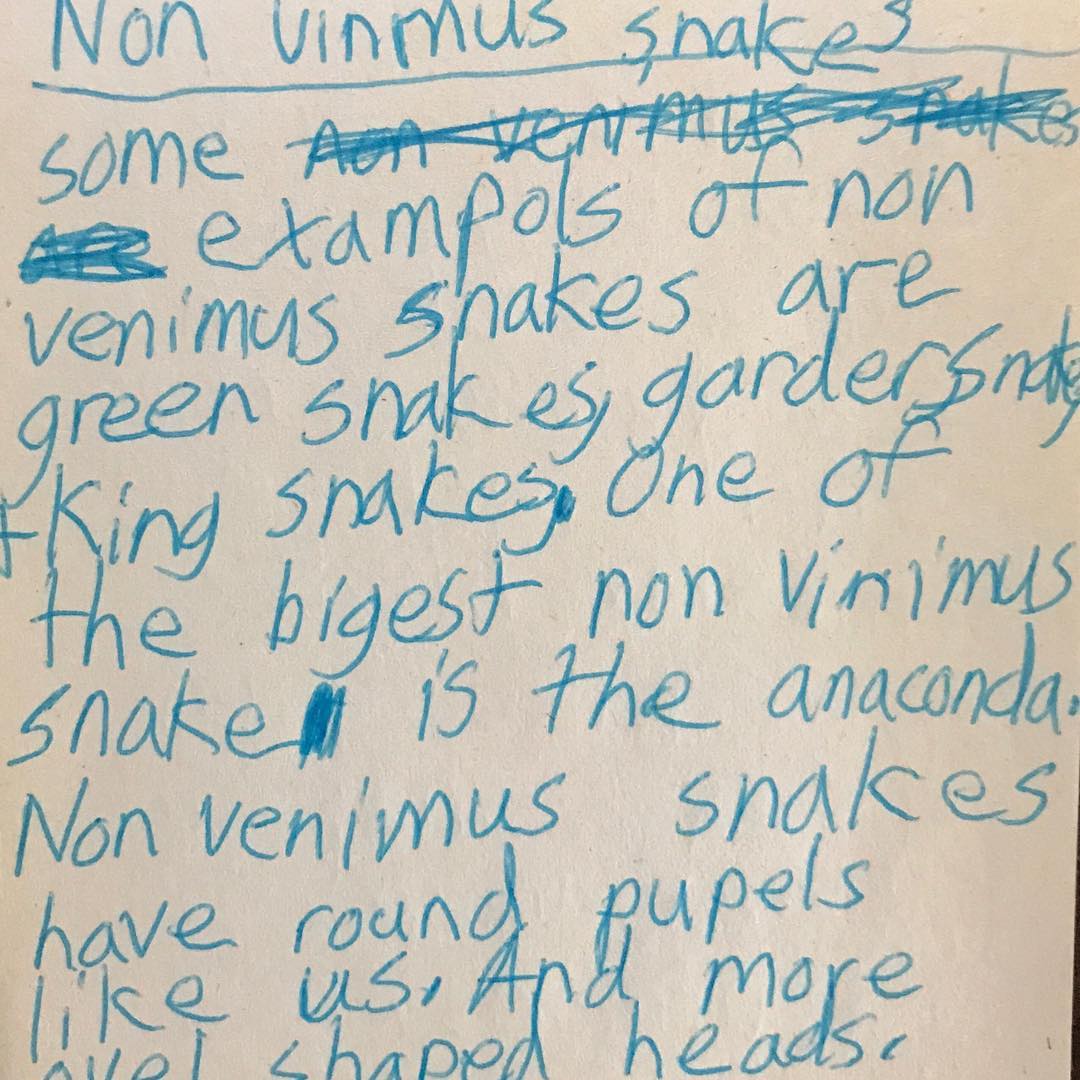 Non vinmus snakes
some non venimus snakes
are exampols of non
venimus snakes are
green snakes, garder snakes,
+ King snakes. One of
the bigest non vinimus
snake is the anaconda.
Non venimus snakes
have round pupels
like us. And more
ovel shaped heads.